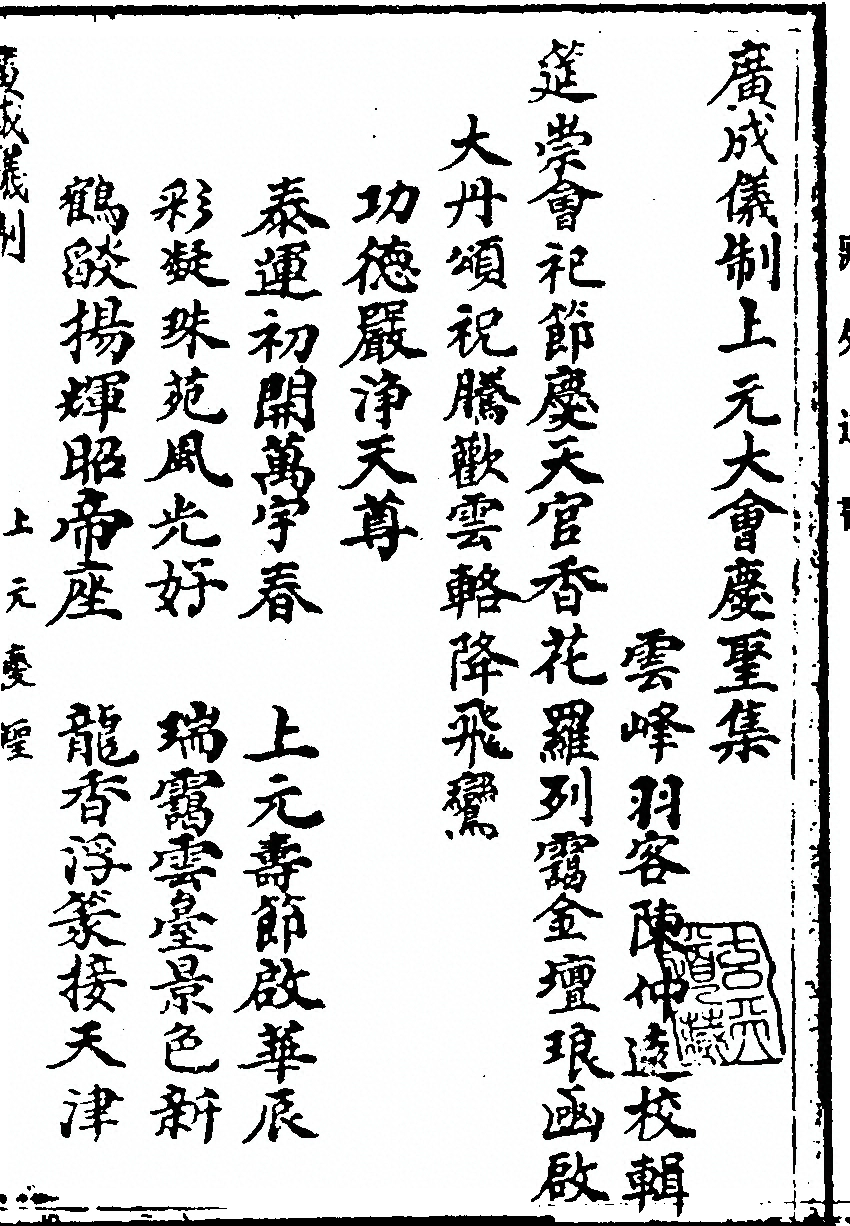 廣成儀制上元大會慶聖集
雲峰羽客陳仲遠校輯
筵崇會祀節慶天官香花羅列靄金壇琅函啟
大丹頌祝騰歡雲輅降飛鸞
功德嚴淨天尊
泰運初開萬宇春　上元壽節啟華辰
彩凝珠苑風光好　瑞靄雲臺景色新
鶴燄揚輝昭帝座　龍香浮篆接天津
廣成儀制　上元慶聖